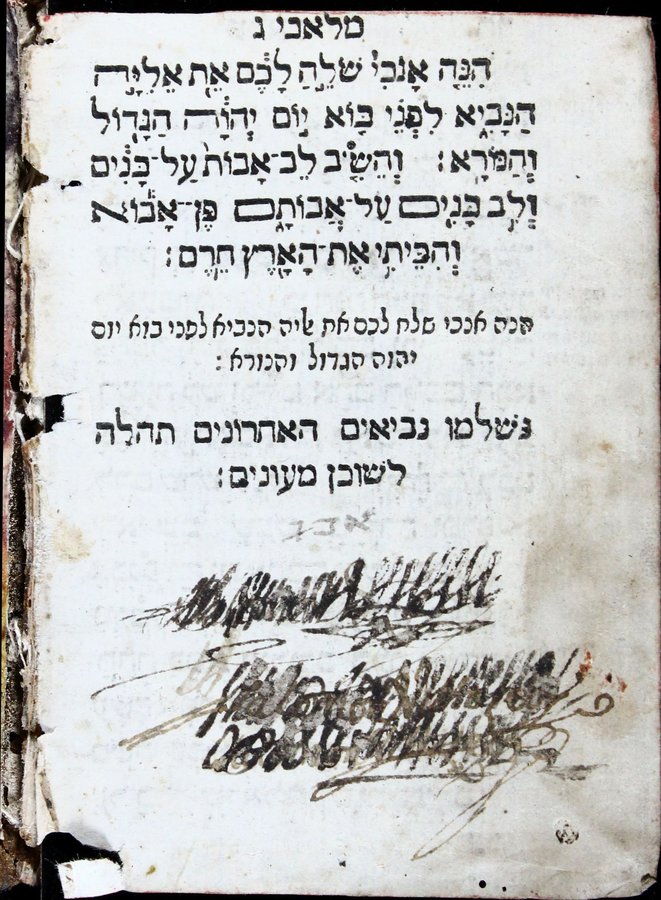 מלאכי ג
הִנֵּה אָנֹכִי שֹׁלֵחַ לָכֶם אֵת אֵלִיָּה
הַנָּבִיא לִפְנֵי בּוֹא יוֹם יְהוָה הַגָּדוֹל
וְהַנּוֹרָא׃ וְהֵשִׁיב לֵב־אָבוֹת עַל־בָּנִים
וְלֵב בָּנִים עַל־אֲבוֹתָם פֶּן־אָבוֹא
וְהִכֵּיתִי אֶת־הָאָרֶץ חֵרֶם׃
הנה אנכי שלח לכם את אליה הנביא לפני בוא יום
יהוה הגדול והנורא׃
נשלמו נביאים האחרונים תהלה
לשוכן מעונים׃
אבג